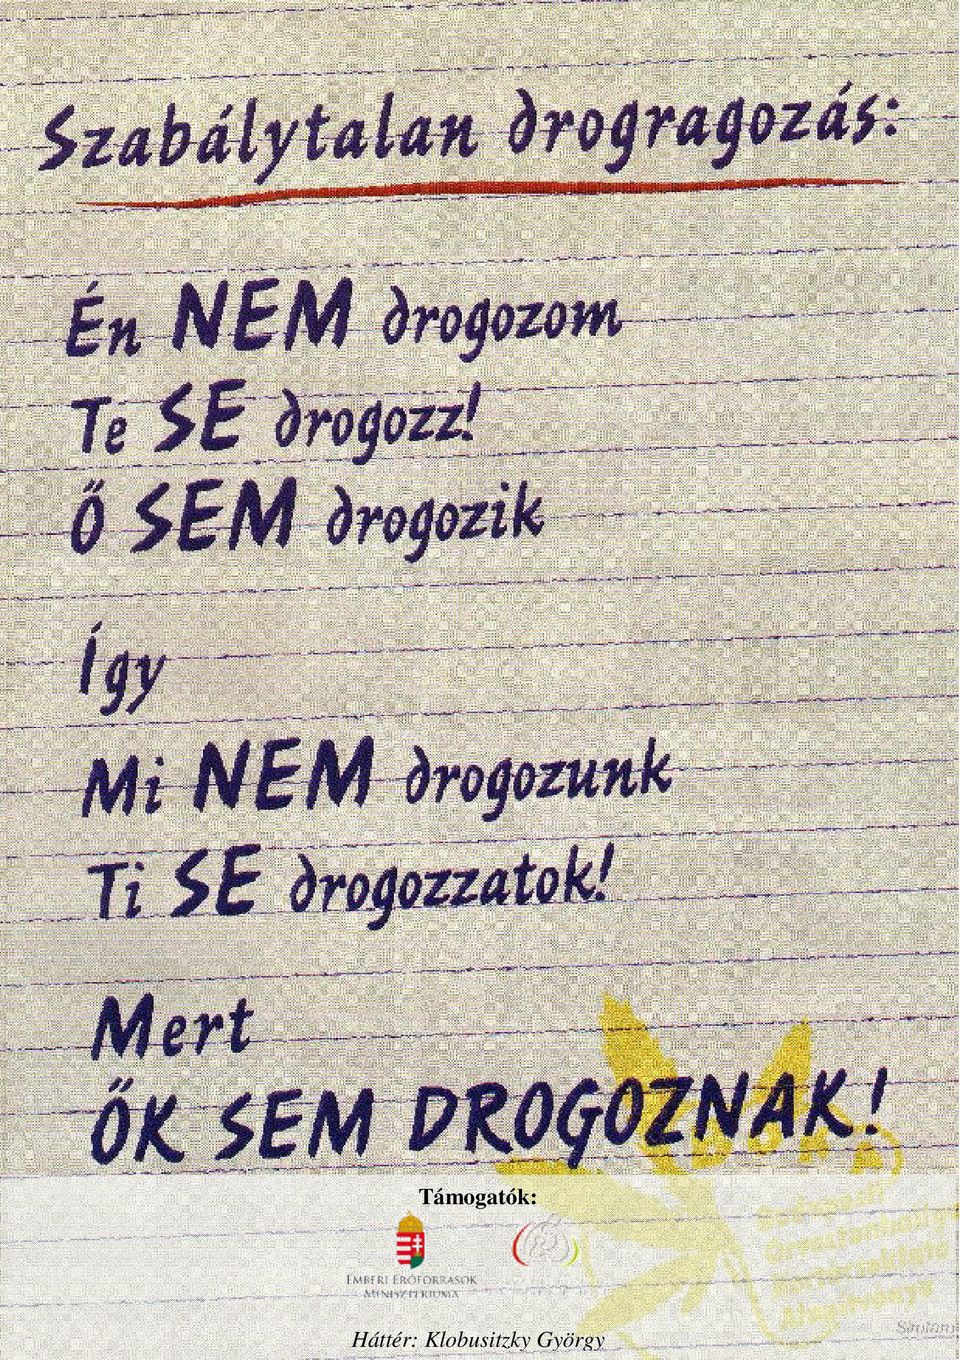 Szabálytalan drogragozás:
Én NEM drogozom
Te SE drogozz!
Ő SEM drogozik
Így
Mi NEM drogozunk
Ti SE drogozzatok!
Mert
ŐK SEM DROGOZNAK!
Támogatók:
EMBERI ERŐFORRÁSOK
MINISZTÉRIUMA
Háttér: Klobusitzky György